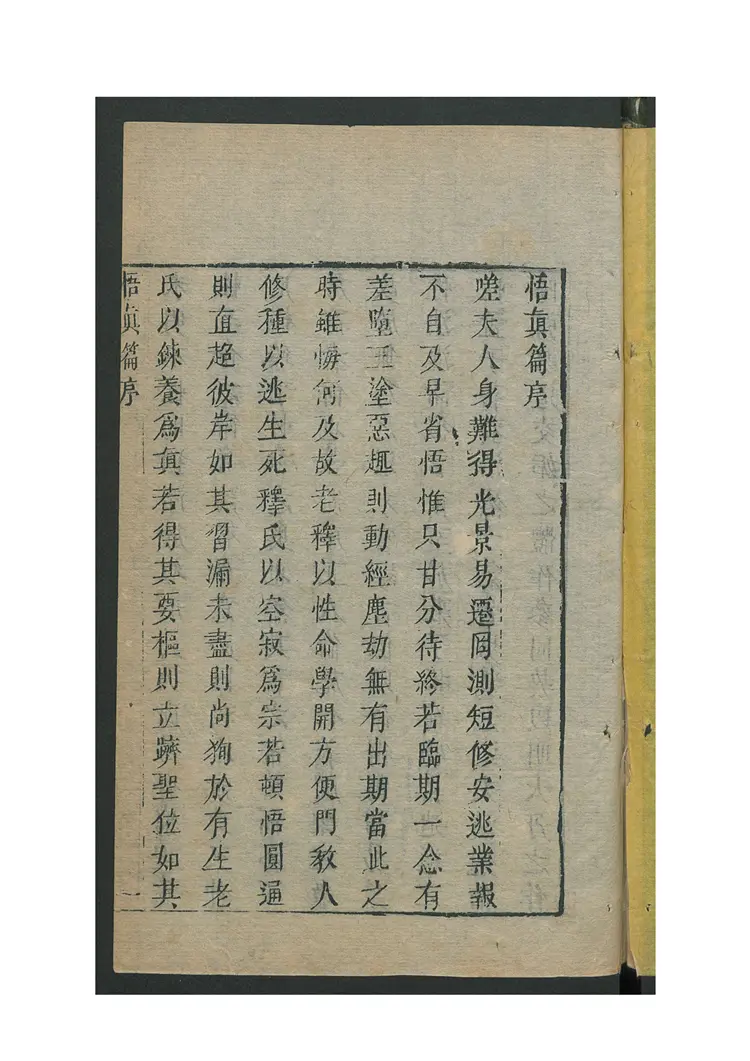 悟真篇序
嗟夫人身難得光景易遷罔測短修安逃業報
不自及早省悟惟只甘分待終若臨期一念有
差墮三塗惡趣則動經塵劫無有出期當此之
時雖悔何及故老釋以性命學開方便門教人
修種以逃生死釋氏以空寂爲宗若頓悟圓通
則直超彼岸如其習漏未盡則尚狥於有生老
氏以鍊養爲眞若得其要樞則立躋聖位如其
悟眞篇序
一